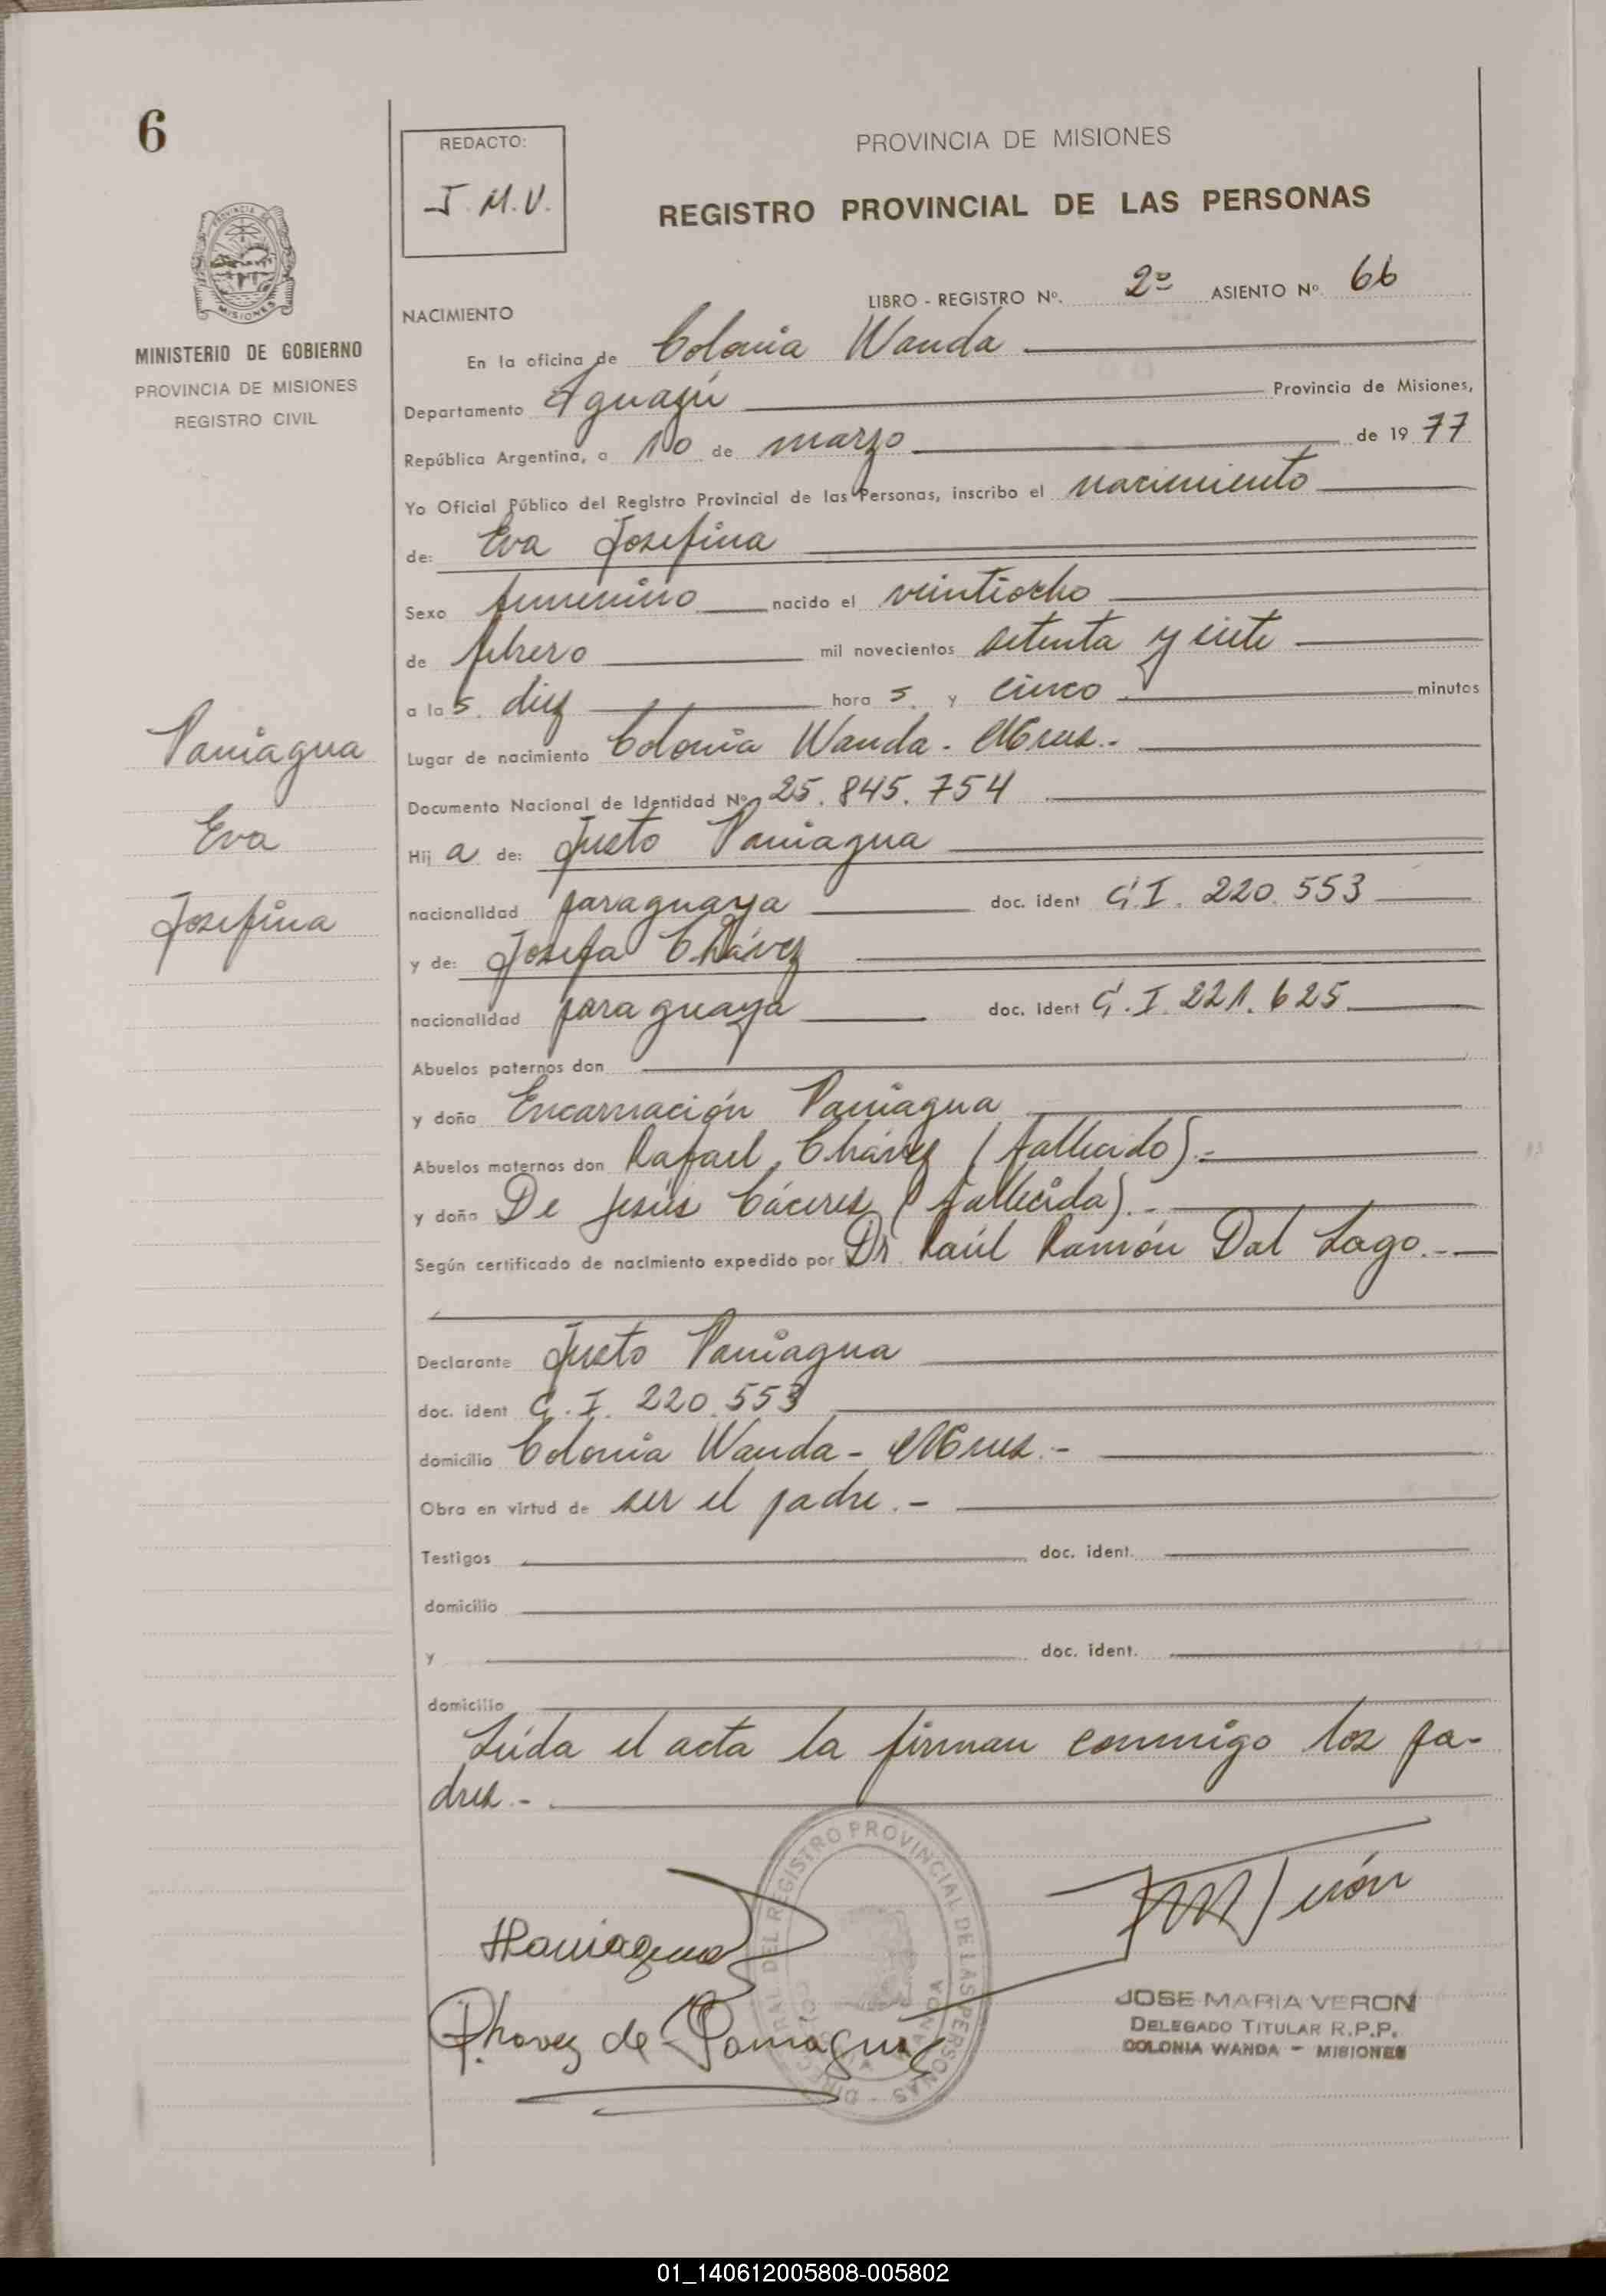 6
REDACTO:
J.M.V.
PROVINCIA DE MISIONES
REGISTRO PROVINCIAL DE LAS PERSONAS
MINISTERIO DE GOBIERNO
PROVINCIA DE MISIONES
REGISTRO CIVIL
LIBRO - REGISTRO Nº. 2º ASIENTO Nº. 66
NACIMIENTO
En la oficina de Colonia Wanda
Departamento Iguazú Provincia de Misiones,
República Argentina, a 10 de marzo de 1977
Yo Oficial Público del Registro Provincial de las Personas, inscribo el nacimiento
de: Eva Josefina
Sexo femenino nacido el veintiocho
de febrero mil novecientos setenta y siete
a las diez horas y cinco minutos
Lugar de nacimiento Colonia Wanda - Mnes.-
Documento Nacional de Identidad Nº 25.845.754
Hija de: Justo Paniagua
nacionalidad paraguaya doc. ident C.I. 220.553
y de: Josefa Chávez
nacionalidad paraguaya doc. ident C.I. 221.625
Abuelos paternos don
y doña Encarnación Paniagua
Abuelos maternos don Rafael Chávez (fallecido).-
y doña De Jesús Cáceres (fallecida).-
Según certificado de nacimiento expedido por Dr. Raúl Ramón Dal Lago.-
Declarante Justo Paniagua
doc. ident C.I. 220.553
domicilio Colonia Wanda - Mnes.-
Obra en virtud de ser el padre.-
Testigos doc. ident.
domicilio
y doc. ident.
domicilio
Leída el acta la firman conmigo los pa-
dres.-
Paniagua
Eva
Josefina
Paniagua
Chavez de Paniagua
JOSE MARIA VERON
DELEGADO TITULAR R.P.P.
COLONIA WANDA - MISIONES
REGISTRO PROVINCIAL DE LAS PERSONAS
01_140612005808-005802